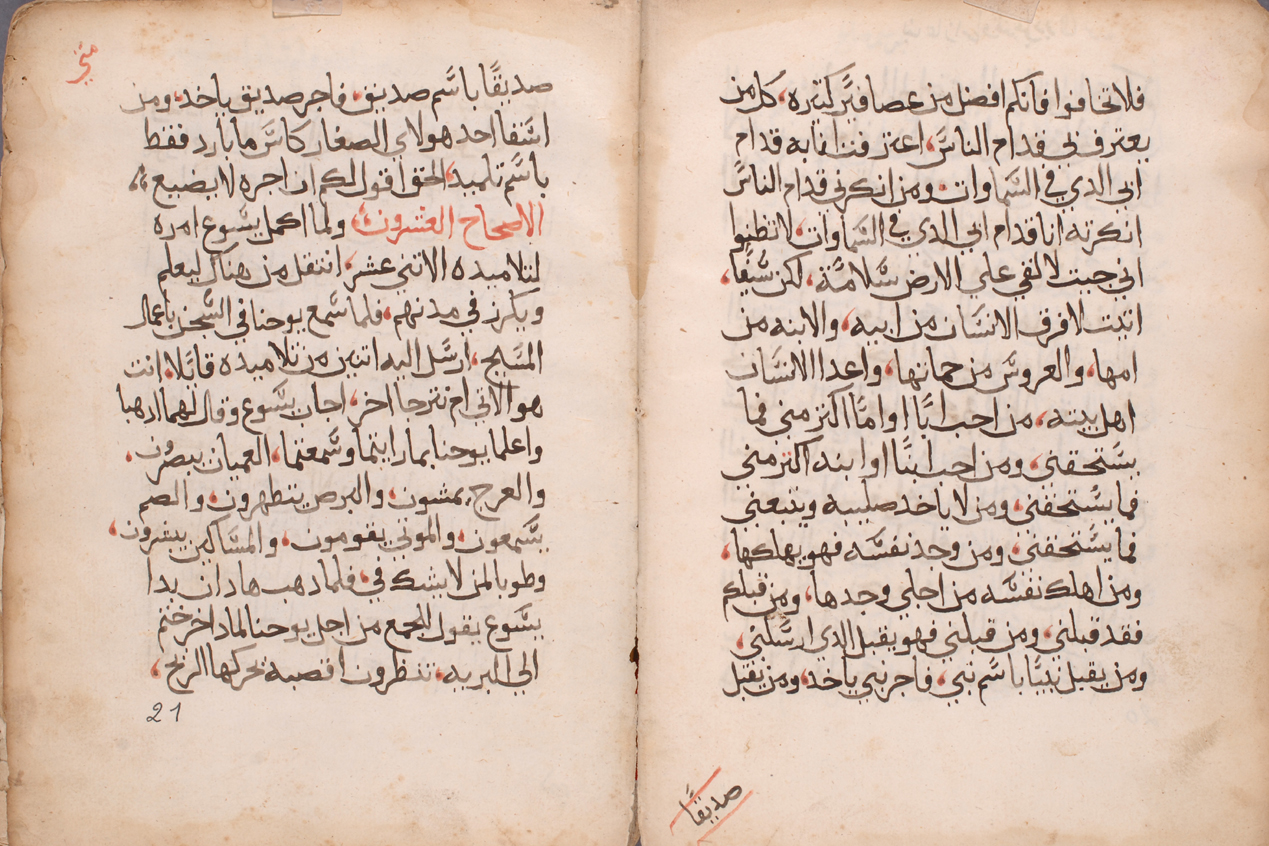 فلا تخافوا فانكم افضل من عصافير كتيره، كل من
يعترف بي قدام الناس، اعترفت انا به قدام
ابي الدي في السماوات، ومن انكرني قدام الناس
انكرته انا قدام ابي الدي في السماوات، لا تظنوا
اني جيت لالقي علي الارض سلامة، لكن سيفا،
اتيت لافرق الانسان من ابيه، والابنه من
امها، والعروس من حماتها، واعدا الانسان
اهل بيته، من احب ابًا او امًا اكتر مني فما
يستحقني، ومن احب ابنًا او ابنه اكتر مني
فما يستحقني، ومن لا ياخد صليبه ويتبعني
فما يستحقني، ومن وجد نفسه فهو يهلكها،
ومن اهلك نفسه من اجلي وجدها، ومن قبلكم
فقد قبلني، ومن قبلني فهو يقبل الدي ارسلني،
ومن يقبل نبيًا باسم نبي، فاجر نبي ياخد، ومن يقبل
صديقًا
متي
صديقًا باسم صديق، فاجر صديق ياخد، ومن
اسقا احد هولاي الصغار كاس ما بارد فقط
باسم تلميد، الحق اقول لكم ان اجره لا يضيع،،
الاصحاح العشرون، ولما اكمل يسوع امره
لتلاميده الاتني عشر، انتقل من هناك ليعلم
ويكرز في مدنهم، فلما سمع يوحنا في السجن باعمال
المسيح، ارسل اليه اتنين من تلاميده قايلا، انت
هو الاتي ام نترجا اخر، اجاب يسوع وقال لهما ادهبا
واعلما يوحنا بما رايتما وسمعتما، العميان يبصرون،
والعرج يمشون، والبرص يتطهرون، والصم
يسمعون، والموتي يقومون، والمساكين يبشرون،
وطوبا لمن لا يشك في، فلما دهب هادان بدا
يسوع يقول للجمع من اجل يوحنا لمادا خرجتم
الي البريه، تنظرون اقصبة تحركها الريح،
21